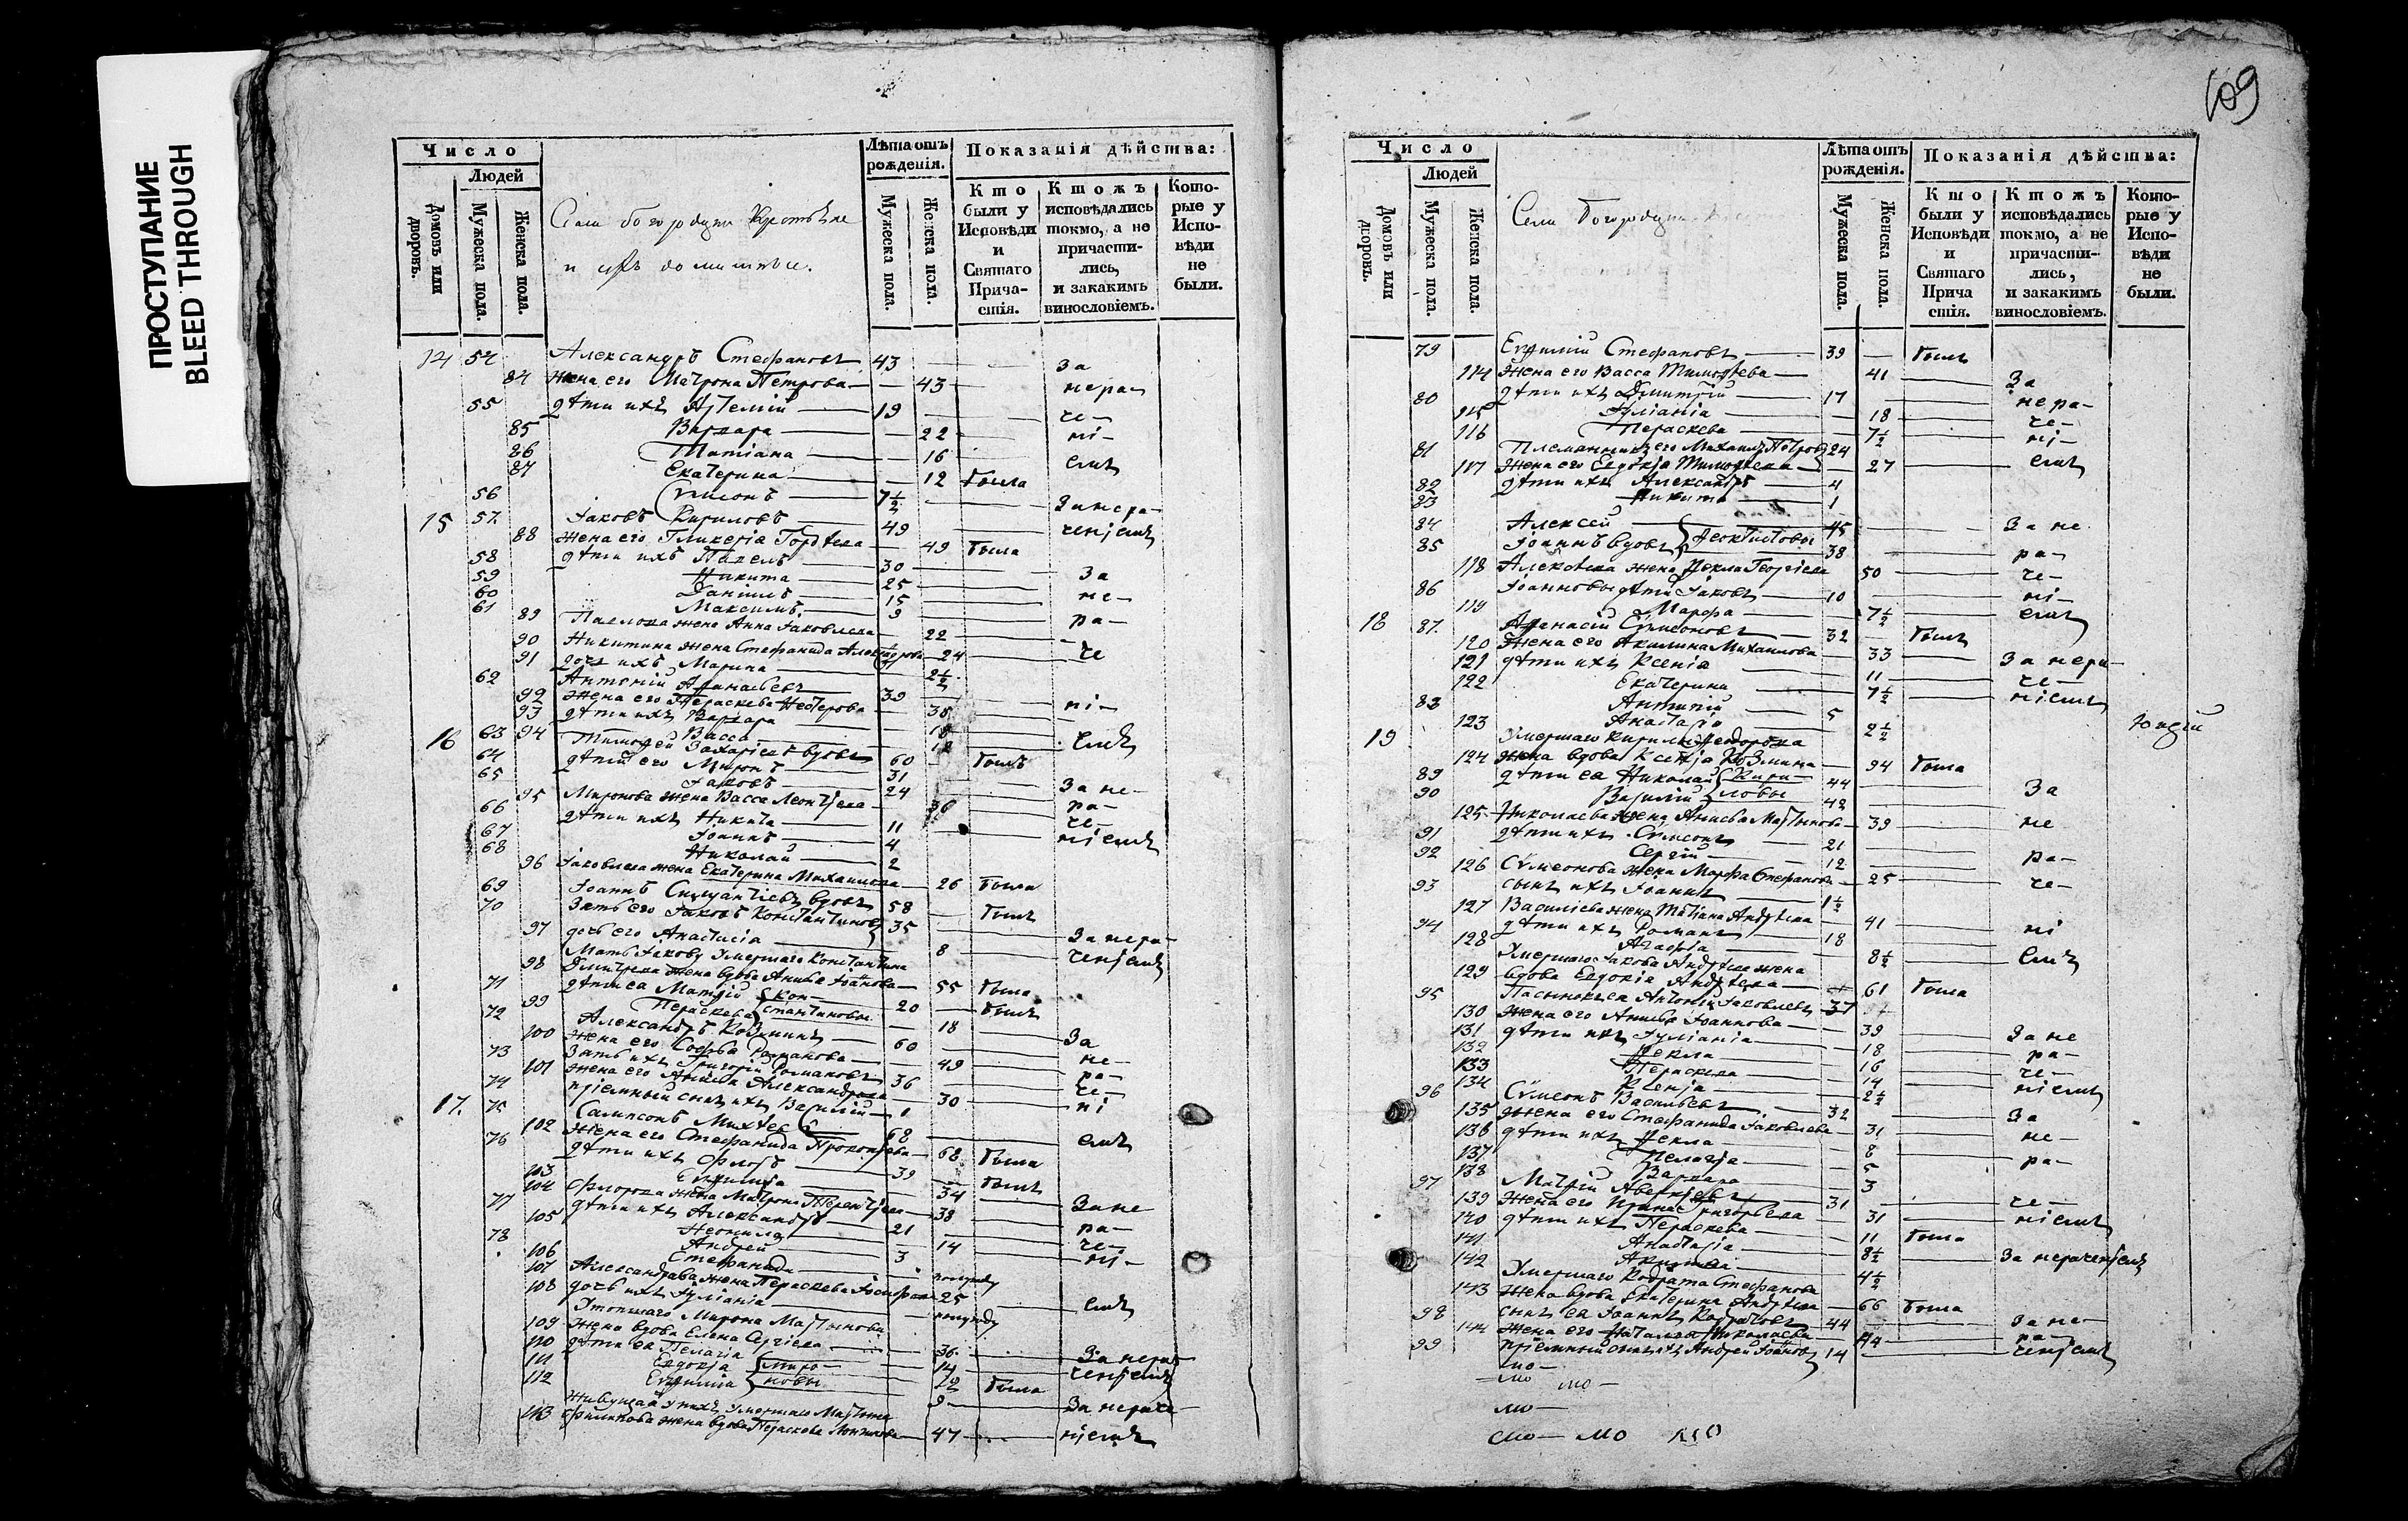 ПРОСТУПАНИЕ
BLEED THROUGH
Число
Людей
Домовъ или дворовъ.
Мужеска пола.
Женска пола.
Лѣта отъ рожденія.
Мужеска пола.
Женска пола.
Показанія дѣйства:
Кто были у Исповѣди и Святаго Причастія.
Ктожъ исповѣдались токмо, а не причастились, и закакимъ винословіемъ.
Которые у Исповѣди не были.
Села Богородцки Крестьяне
и ихъ домашніе.
14 54 Александръ Стефановъ 43 за
84 Жена его Матрона Петрова 43 нера-
55 дѣти ихъ Артемій 19 че-
85 Варвара 22 ні-
86 Татіана 16 емъ
87 Екатерина 12 была
56 Сѵмеонъ 7½ За нера-
15 57 Іаковъ Кириловъ 49 ченіемъ
88 жена его Гликерія Гордѣева 49 была
58 дѣти ихъ Павелъ 30
59 Никита 25 За
60 Даніилъ 15 не-
61 Максимъ 9 ра-
89 Павлова жена Анна Іаковлева 22
90 Никитина жена Стефанида Александрова 24 че
91 дочь ихъ Марина 2½
62 Антоній Афанасьевъ 39
92 Жена его Пераскева Несterова 38 ні-
93 дѣти ихъ Варвара
94 Васса емъ
16 63 Тимофей Захаріевъ вдовъ 60 былъ
64 дѣти его Миронъ 31
65 Іаковъ 24 За не-
95 Миронова жена Васса Леонтіева 36 ра-
66 дѣти ихъ Никита 11 че-
67 Іоаннъ 4 ніемъ
68 Николай 2
96 Іаковлева жена Екатерина Михаилова 26 была
69 Іоаннъ вдовъ 58 былъ
70 Зять его Іаковъ Константиновъ 35
97 дочь его Анастасія 8 За нера-
Мать Іакову Умершаго Константина ченіемъ
98 Дмитрева жена вдова Анисья Іоанова 55 была
71 дѣти ея Матѳій 20 былъ
99 Пераскева Константиновы 18
72 Александръ Козминъ 60 За
100 жена его Софья Романова 49 не-
73 Зять ихъ Григорій Романовъ 36 ра-
101 жена его Александрова 30 че-
74 пріемный сынъ ихъ Василій ні
17. 75 Сампсонъ Михѣев 68 емъ
102 Жена его Стефанида Прокопіева 68 была
76 дѣти ихъ Флоръ 39 былъ
103 Евфимія 34
104 Флорова жена Матрона Терентіева 38 За не
77 дѣти ихъ Александръ 21 ра-
105 Неонила 14 че-
78 Андрей 3 ні-
106 Стефанида полгоду
107 Александрова жена Пераскева 25 емъ
108 дочь ихъ Іуліанія полгоду
Утопшаго Мирона Мартынова
109 жена вдова Елена Сергіева 36 За нера-
110 дѣти ея Пелагія 14 ченіемъ
111 Евдокія была
112 Евфимія Мироновы 9 За нераче-
Живущая у нихъ умершаго Мартина
113 Филипова жена вдова Пераскева 47 ніемъ
109
Число
Людей
Домовъ или дворовъ.
Мужеска пола.
Женска пола.
Лѣта отъ рожденія.
Мужеска пола.
Женска пола.
Показанія дѣйства:
Кто были у Исповѣди и Святаго Прича стія.
Ктожъ исповѣдались токмо, а не причастились, и закакимъ винословіемъ.
Которые у Исповѣди не были.
Села Богородцки
79 Евфимій Стефановъ 39 былъ
114 Жена его Васса Тимофеева 41 За
80 дѣти ихъ Димитрій 17 нера-
115 Іуліанія 18 че-
116 Пераскева 7½ ні-
81 Племянникъ его Михаилъ Петровъ 24 емъ
117 Жена его Евдокія Тимофеева 27
82 дѣти ихъ Александръ 4
83 Никита 1
84 Алексей 45 За не
85 Іоаннъ вдовъ Феоктистовы 38 ра-
118 Алексѣева жена Ѳекла Георгіева 50 че-
86 Іоанновы дѣти Іаковъ 10 ні-
119 Марфа 7½ емъ
18 87. Афанасій Сѵмеоновъ 32 былъ
120 Жена его Акилина Михаилова 33 За нера-
121 дѣти ихъ Ксенія 11 че-
122 Екатерина 7½ ніемъ
88 Антипій 5
123 Анастасія 2½
19 Умершаго Кирила Федорова
124 жена вдова Ксенія Козмина 94 была
89 дѣти ея Николай 44 За
90 Василій Кириловы 42
125 Николаева жена Анисья Мартынова 39 не
91 дѣти ихъ Сѵмеонъ 21
92 Сергій 12 ра-
126 Сѵмеонова жена Марфа Стефанова 25 че-
93 сынъ ихъ Іоаннъ 1½
127 Василіева жена Татіана Андрѣева 41 ні
94 дѣти ихъ Романъ 18
128 Агафія 8½ емъ
Умершаго Іакова Андрѣева жена
129 вдова Евдокія Андрѣева 61 была
95 Пасынокъ ея Антоній Іаковлевъ 37
130 жена его Анисья Іоаннова 39 За не
131 дѣти ихъ Іуліанія 18 ра-
132 Ѳекла 16 че-
133 Пераскева 14 ніемъ
134 Ксенія 2½
96 Сѵмеонъ Васильевъ 32 За
135 Жена его Стефанида Іаковлева 31 не-
136 дѣти ихъ Ѳекла 8
137 Пелагія 5 ра-
138 Варвара 3
97 Матѳій 31 че-
139 Жена его Ирина Григорьева 31 ніемъ
140 дѣти ихъ Пераскева 11 была
141 Анастасія 8½ За нераченіемъ
142 4½
Умершаго Кодрата Стефанова
143 Жена вдова Екатерина Андрѣева 66 была
98 сынъ ея Іоаннъ Кодратовъ 44 За не-
144 Жена его Наталья Николаева 44 ра-
99 пріемный сынъ ихъ Андрей Іоановъ 14 ченіемъ
мо-
мо мо-
мо-
мо- мо